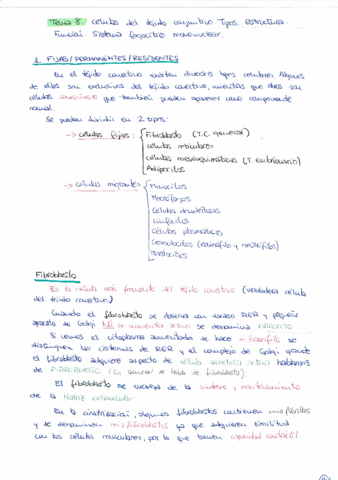 Tema 8: Células del tejido conjuntivo. Tipos. Estructura.
Función. Sistema fagocítico mononuclear.
1. FIJAS/PERMANENTES/RESIDENTES
En el tejido conectivo existen diversos tipos celulares. Algunos
de ellos son exclusivos del tejido conectivo, mientras que otros son
células sanguíneas que también pueden aparecer como componente
normal.
Se pueden dividir en 2 tipos:
→ células fijas: Fibroblasto (T.C. general)
células reticulares
células mesenquimáticas (T. embrionario)
Adipocitos
→ células migrantes: Monocitos
Macrófagos
Células dendríticas
Linfocitos
Células plasmáticas
Granulocitos (eosinófilo y neutrófilos)
Mastocitos
Fibroblasto
Es la célula más frecuente del tejido conectivo (verdadera célula
del tejido conectivo).
Cuando el fibroblasto se observa con escaso RER y pequeño
aparato de Golgi NO se encuentra activo se denomina FIBROCITO
Si vemos el citoplasma aumentado se hace + basófilo se
distinguen las cisternas de RER y el complejo de Golgi grande
el fibroblasto adquiere aspecto de célula secretora activa hablamos
de FIBROBLASTO (En general se habla de fibroblasto)
El fibroblasto se encarga de la síntesis, mantenimiento
de la matriz extracelular
En la cicatrización, algunos fibroblastos contienen miofibrillas
y se denominan miofibroblastos ya que adquieren similitud
con las células musculares, por lo que tienen capacidad contráctil.